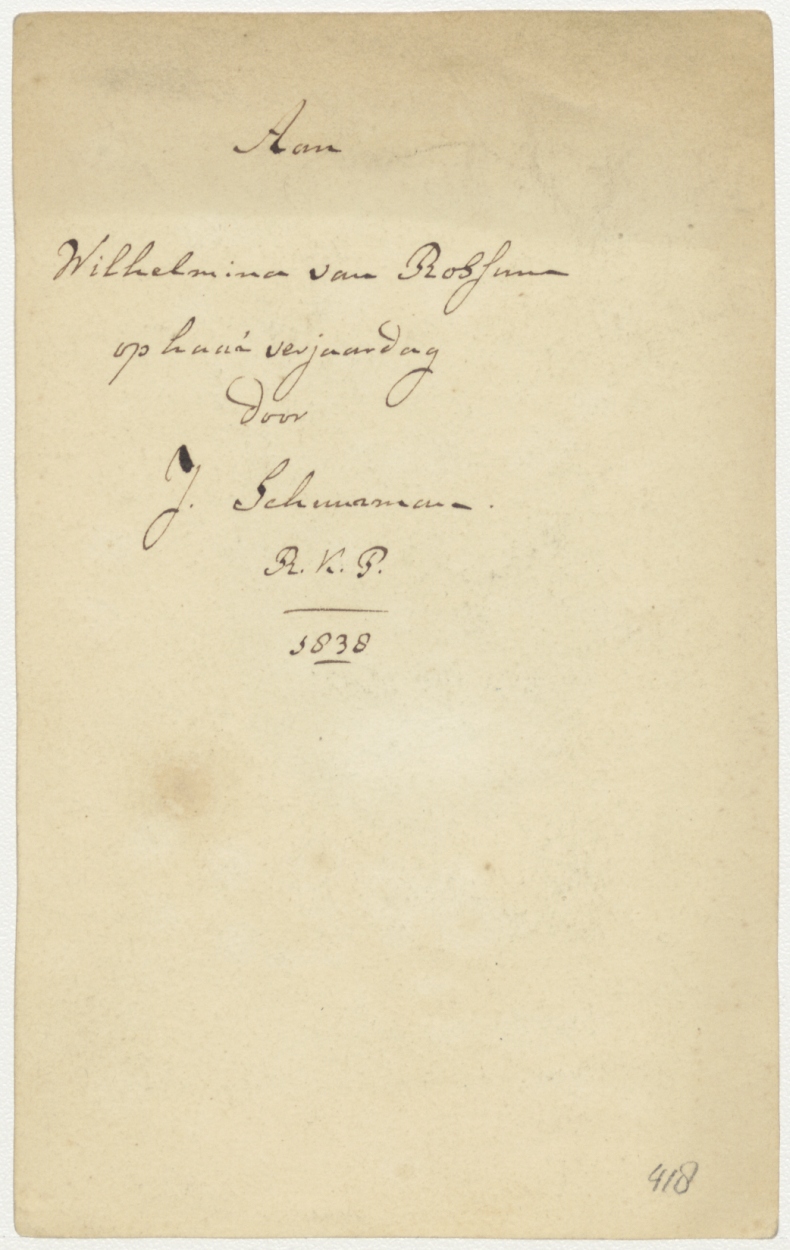 Aan
Wilhelmina van Robsum
op haar verjaardag
door
J. Schuurman.
R. K. P.
1838
418